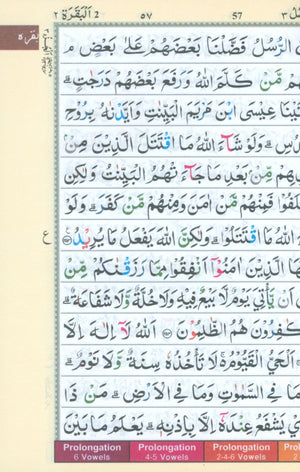 ٢ اَلْبَقَرَة 2 ٥٧ 57 ٣
بقرة
الرُّسُلُ فَضَّلْنَا بَعْضَهُمْ عَلٰى بَعْضٍ م
مَّنْ كَلَّمَ اللّٰهُ وَرَفَعَ بَعْضَهُمْ دَرَجٰتٍ
عِيْسَى ابْنَ مَرْيَمَ الْبَيِّنٰتِ وَاَيَّدْنٰهُ بِرُوْحِ
وَلَوْ شَآءَ اللّٰهُ مَا اقْتَتَلَ الَّذِيْنَ مِنْ
مِّنْ بَعْدِ مَا جَآءَتْهُمُ الْبَيِّنٰتُ وَلٰكِنِ
فَمِنْهُمْ مَّنْ اٰمَنَ وَمِنْهُمْ مَّنْ كَفَرَ وَلَوْ
اللّٰهُ مَا اقْتَتَلُوْا وَلٰكِنَّ اللّٰهَ يَفْعَلُ مَا يُرِيْدُ
ع
الَّذِيْنَ اٰمَنُوْٓا اَنْفِقُوْا مِمَّا رَزَقْنٰكُمْ مِّنْ
اَنْ يَّاْتِيَ يَوْمٌ لَّا بَيْعٌ فِيْهِ وَلَا خُلَّةٌ وَّلَا شَفَاعَةٌ
هُمُ الظّٰلِمُوْنَ اَللّٰهُ لَآ اِلٰهَ اِلَّا
اَلْحَيُّ الْقَيُّوْمُ لَا تَاْخُذُهٗ سِنَةٌ وَّلَا نَوْمٌ
مَا فِي السَّمٰوٰتِ وَمَا فِي الْاَرْضِ مَنْ ذَا
يَشْفَعُ عِنْدَهٗٓ اِلَّا بِاِذْنِهٖ يَعْلَمُ مَا بَيْنَ
Prolongation Prolongation Prolongation
6 Vowels 4-5 Vowels 2-4-6 Vowels 2